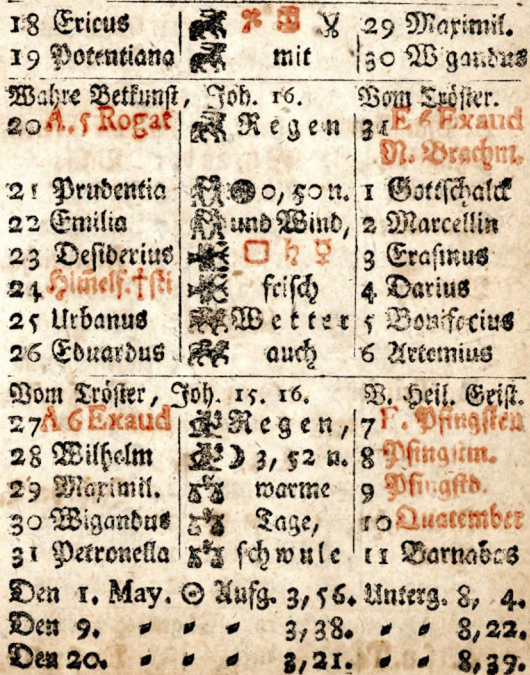 18 Ericus 29 Maximil.
19 Potentiana mit 30 Wigandus
Wahre Betkunst, Joh. 16. Vom Tröster.
20 A. 5 Rogat Regen 31 E 6 Exaud
N. Brachm.
21 Prudentia 0, 50 n. 1 Gottschalck
22 Emilia und Wind, 2 Marcellin
23 Desiderius □ ♄ ☿ 3 Erasmus
24 Him̃elf. † frisch 4 Darius
25 Urbanus Wetter 5 Bonifacius
26 Eduardus auch 6 Artemius
Vom Tröster, Joh. 15. 16. V. Heil. Geist.
27 A 6 Exaud Regen, 7 F. Pfingsten
28 Wilhelm ☽ 3, 52 n. 8 Pfingstm.
29 Maximil. warme 9 Pfingstd.
30 Wigandus Tage, 10 Quatember
31 Petronella schwule 11 Barnabas
Den 1. May. ☉ Aufg. 3, 56. Unterg. 8, 4.
Den 9. 〃 〃 〃 3, 38. 〃 〃 8, 22.
Den 20. 〃 〃 〃 3, 21. 〃 〃 8, 39.